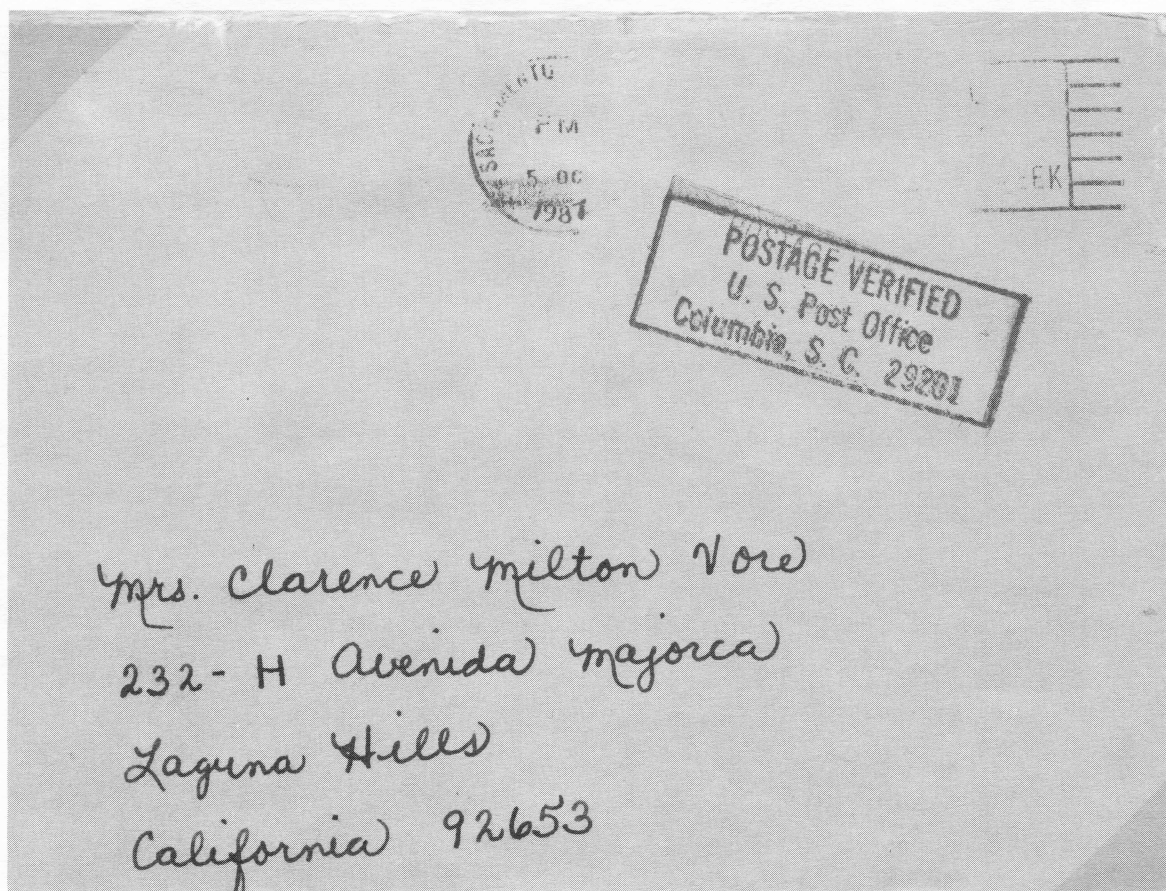 SACRAMENTO
PM
5 OC
1987
EK
POSTAGE VERIFIED
U. S. Post Office
Columbia, S. C. 29201
Mrs. Clarence Milton Vore
232-H Avenida Majorca
Laguna Hills
California 92653